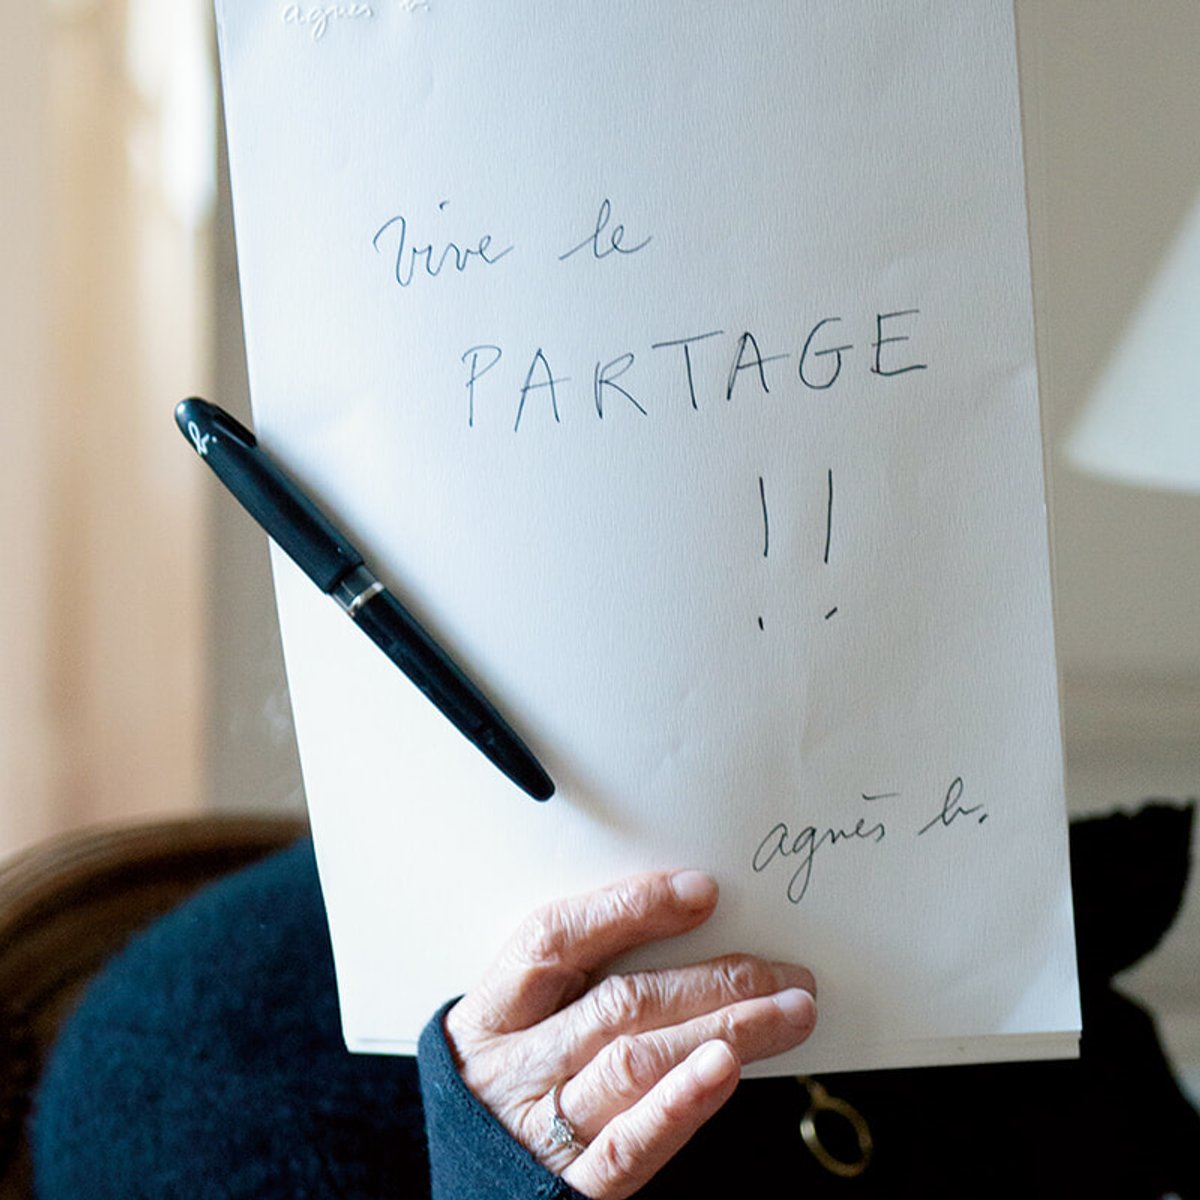 agnès b.
vive le
PARTAGE
!!
agnès b.
b.